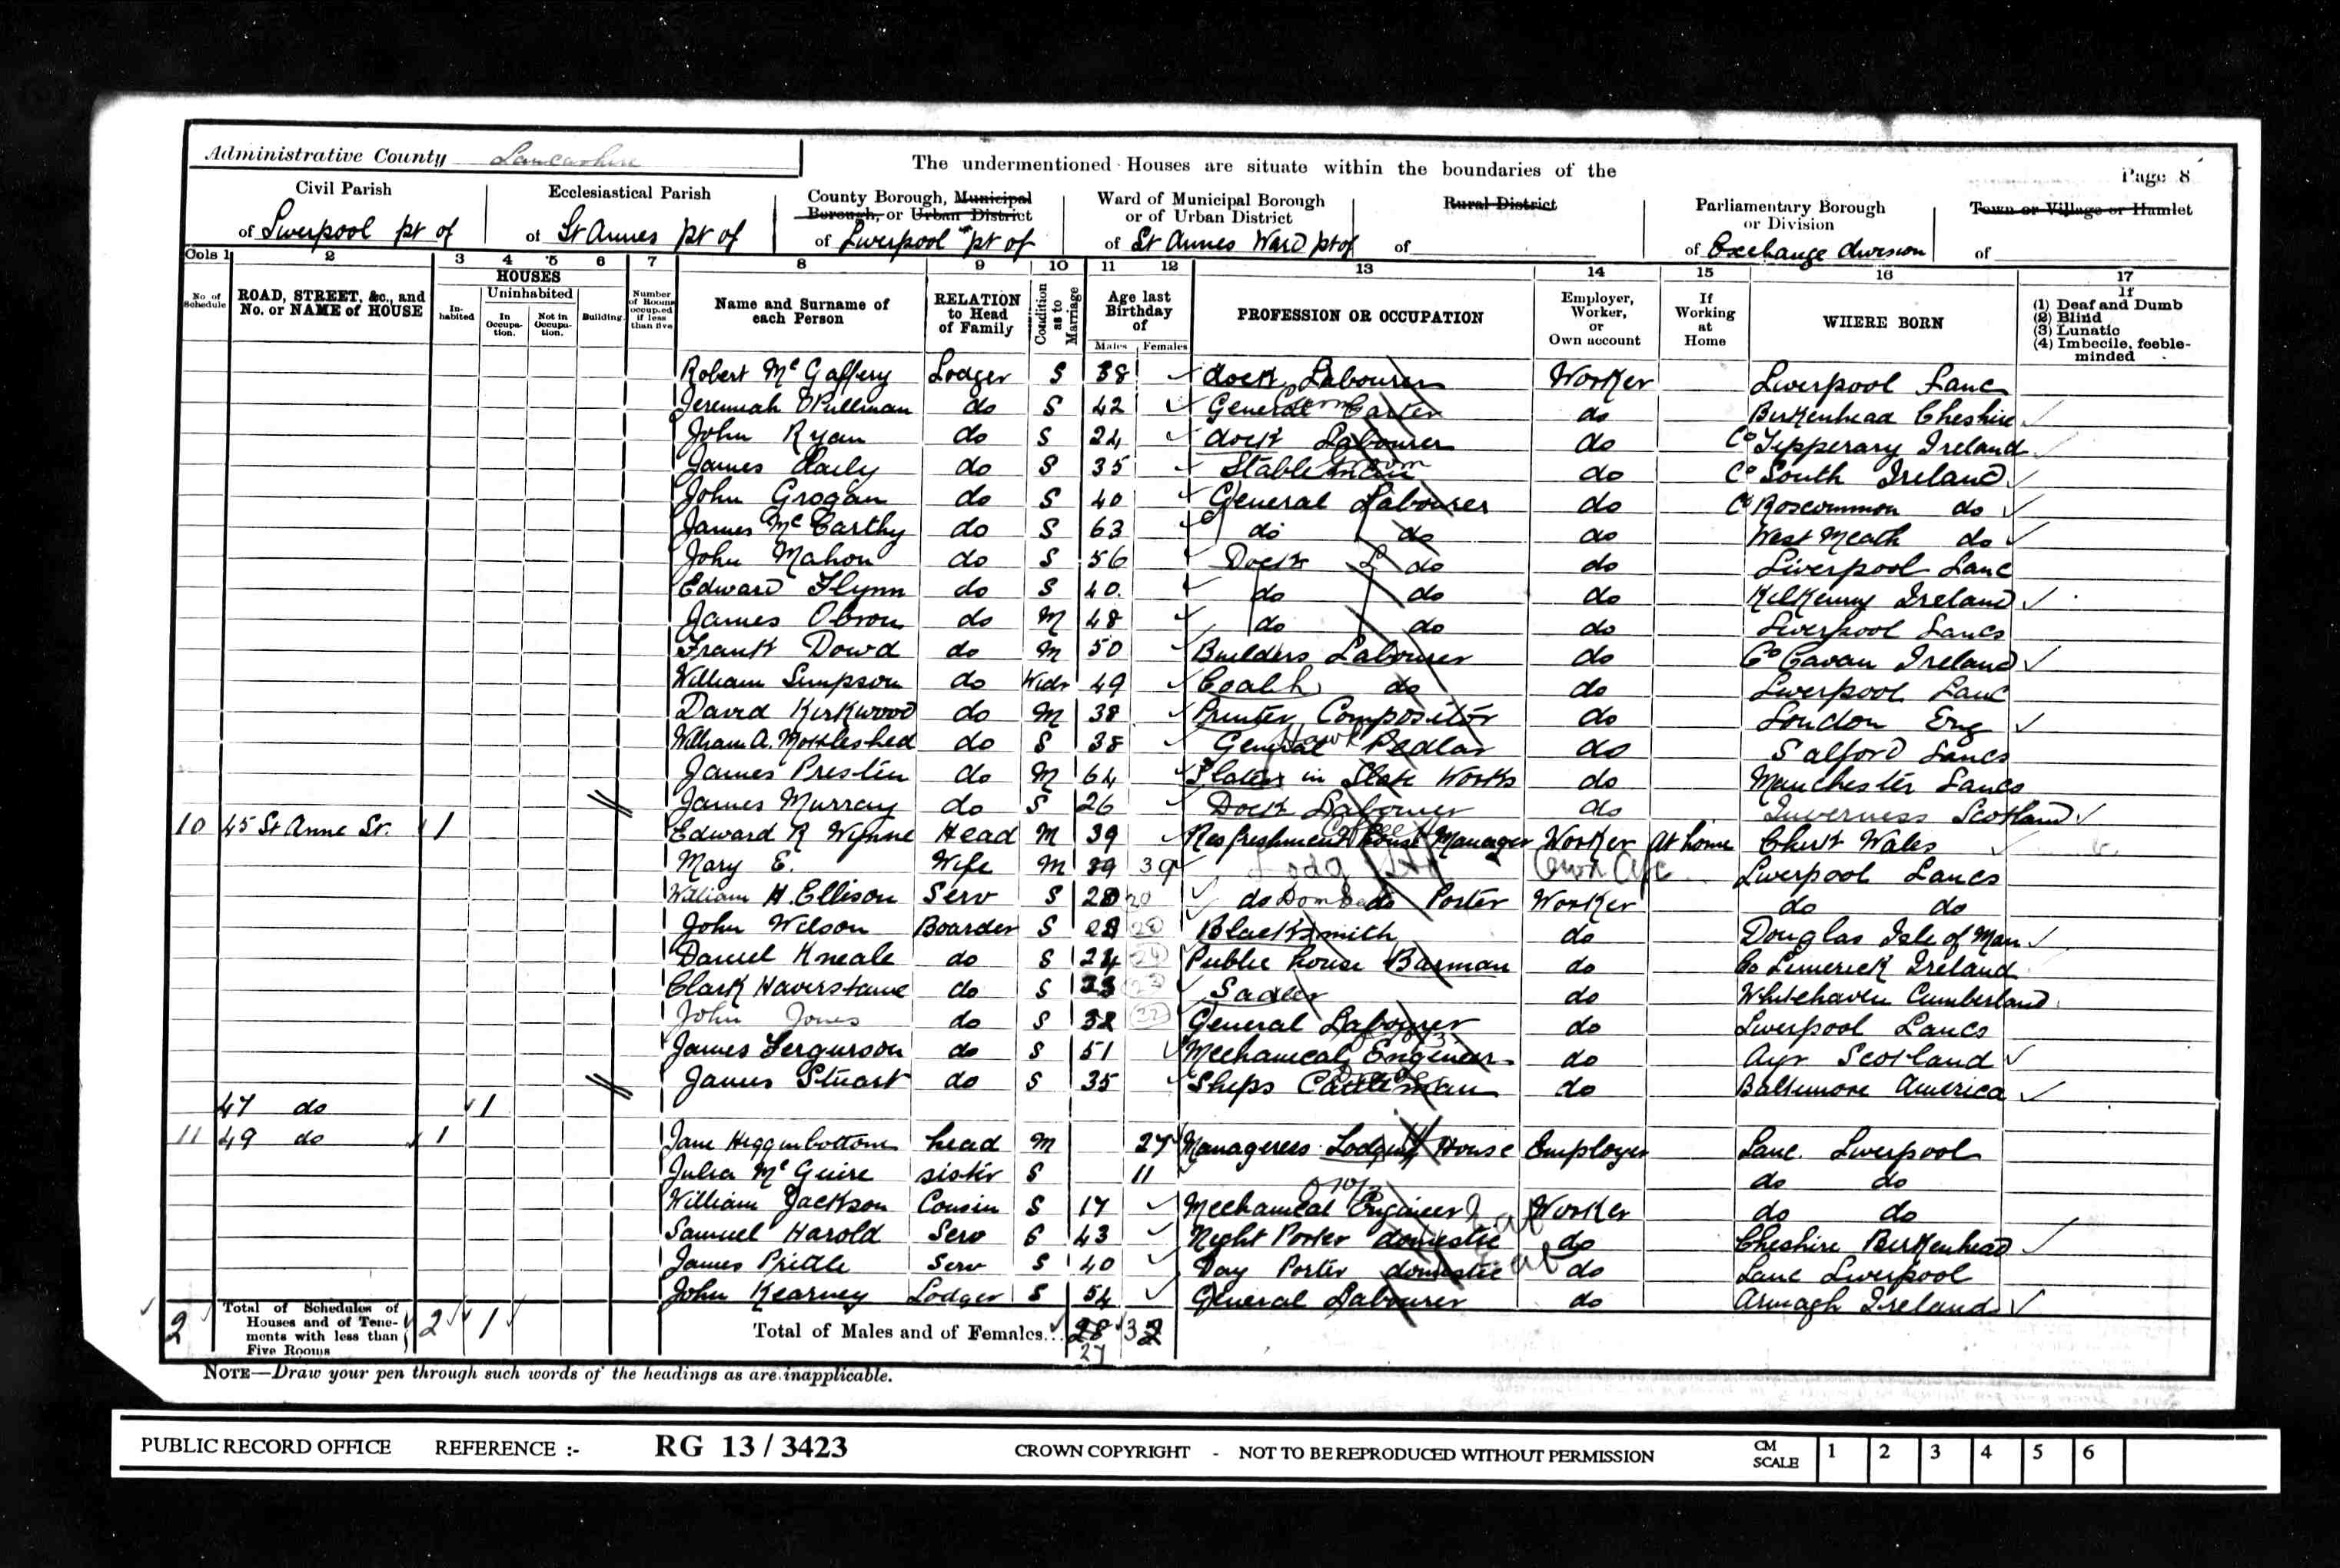 Administrative County Lancashire
The undermentioned Houses are situate within the boundaries of the
Page 8
Civil Parish of Liverpool pt of
Ecclesiastical Parish of St Annes pt of
County Borough, Municipal Borough, or Urban District of Liverpool pt of
Ward of Municipal Borough or of Urban District of St Annes Ward pt of
Rural District of
Parliamentary Borough or Division of Exchange division
Town or Village or Hamlet of
Cols 1 2 3 4 5 6 7 8 9 10 11 12 13 14 15 16 17
No of Schedule
ROAD, STREET, &c., and No. or NAME of HOUSE
HOUSES
Inhabited
Uninhabited
In Occupation.
Not in Occupation.
Building.
Number of Rooms occupied if less than five
Name and Surname of each Person
RELATION to Head of Family
Condition as to Marriage
Age last Birthday of
Males Females
PROFESSION OR OCCUPATION
Employer, Worker, or Own account
If Working at Home
WHERE BORN
If
(1) Deaf and Dumb
(2) Blind
(3) Lunatic
(4) Imbecile, feeble-minded
Robert Mc Gaffery Lodger S 38 dock Labourer Worker Liverpool Lanc
Jeremiah do S 42 General Carter do Birkenhead Cheshire
John Ryan do S 24 dock Labourer do Co Tipperary Ireland
James Daily do S 35 Stable man do Co South Ireland
John Grogan do S 40 General Labourer do Co Roscommon do
James Mc Carthy do S 63 do do do West Meath do
John Mahon do S 56 Dock L do do Liverpool Lanc
Edward Flynn do S 40 do do do Kilkenny Ireland
James do M 48 do do do Liverpool Lancs
Frank Dowd do M 50 Builders Labourer do Co Cavan Ireland
William Simpson do Widr 49 Coal h do do Liverpool Lanc
David Kirkwood do M 38 Printer Compositor do London Eng
William A. Mottleshed do S 38 General Hawk Pedlar do Salford Lancs
James Preston do M 64 Slater in Slate Works do Manchester Lancs
James Murray do S 26 Dock Labourer do Inverness Scotland
10 45 St Anne St. 1 Edward R Wynne Head M 39 Refreshment house Manager Worker At home Chirk Wales
Mary E. Wife M 39 39 Lodg Own a/c Liverpool Lancs
William H. Ellison Serv S 20 20 do Dom do Porter Worker do do
John Wilson Boarder S 28 28 Blacksmith do Douglas Isle of Man
Daniel Kneale do S 24 24 Public house Barman do Co Limerick Ireland
Clark do S 23 23 Sadler do Whitehaven Cumberland
John Jones do S 32 32 General Labourer do Liverpool Lancs
James Fergurson do S 51 Mechanical Engineer do Ayr Scotland
James Stuart do S 35 Ships Cattleman do Baltimore America
47 do 1
11 49 do 1 Jane Higginbottom head M 27 Manageress Lodging House Employer Lanc Liverpool
Julia Mc Guire sister S 11 do do
William Jackson Cousin S 17 Mechanical Engineer Worker do do
Samuel Harold Serv S 43 Night Porter domestic do Cheshire Birkenhead
James Serv S 40 Day Porter domestic do Lanc Liverpool
John Kearney Lodger S 54 General Labourer do Armagh Ireland
2 Total of Schedules of Houses and of Tenements with less than Five Rooms 2 1
Total of Males and of Females... 28 3 2
27
NOTE—Draw your pen through such words of the headings as are inapplicable.
PUBLIC RECORD OFFICE REFERENCE :- RG 13 / 3423 CROWN COPYRIGHT - NOT TO BE REPRODUCED WITHOUT PERMISSION CM SCALE 1 2 3 4 5 6